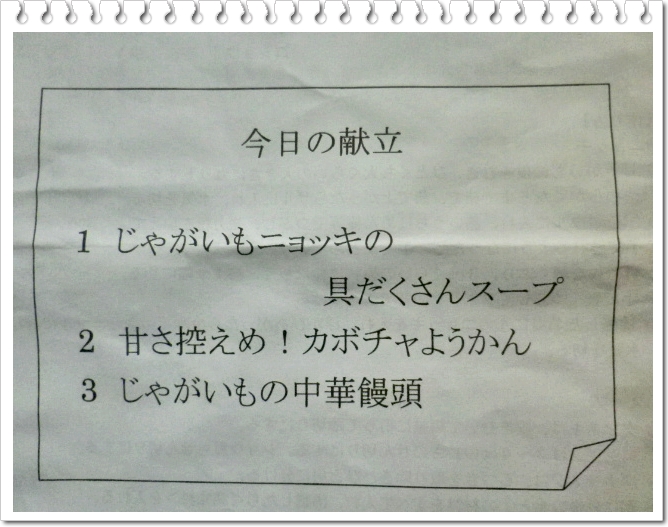 今日の献立
1 じゃがいもニョッキの
具だくさんスープ
2 甘さ控えめ！カボチャようかん
3 じゃがいもの中華饅頭